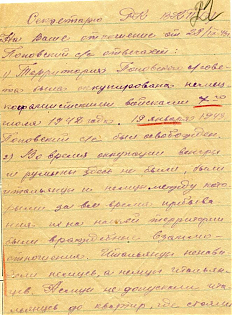 Секретарю РК ВКП(б)
На Ваше отношение от 23/IV-
Поповский с/с отвечает:
1) Территория Поповского с/сове
та была оккупирована немец
кофашистскими войсками 7го
июля 1942 года. 19 января 1943
Поповский с/с был освобожден.
2) Во время оккупации венгры
и румыны здесь не были, были
итальянцы и немцы между кото
рыми за все время пребыва
ния их на нашей территории
были враждебные взаимо
отношения. Итальянцы ненави
дели немцев, а немцы итальян
цев. Немцы не допускали ита
льянцев до квартир, где стояли